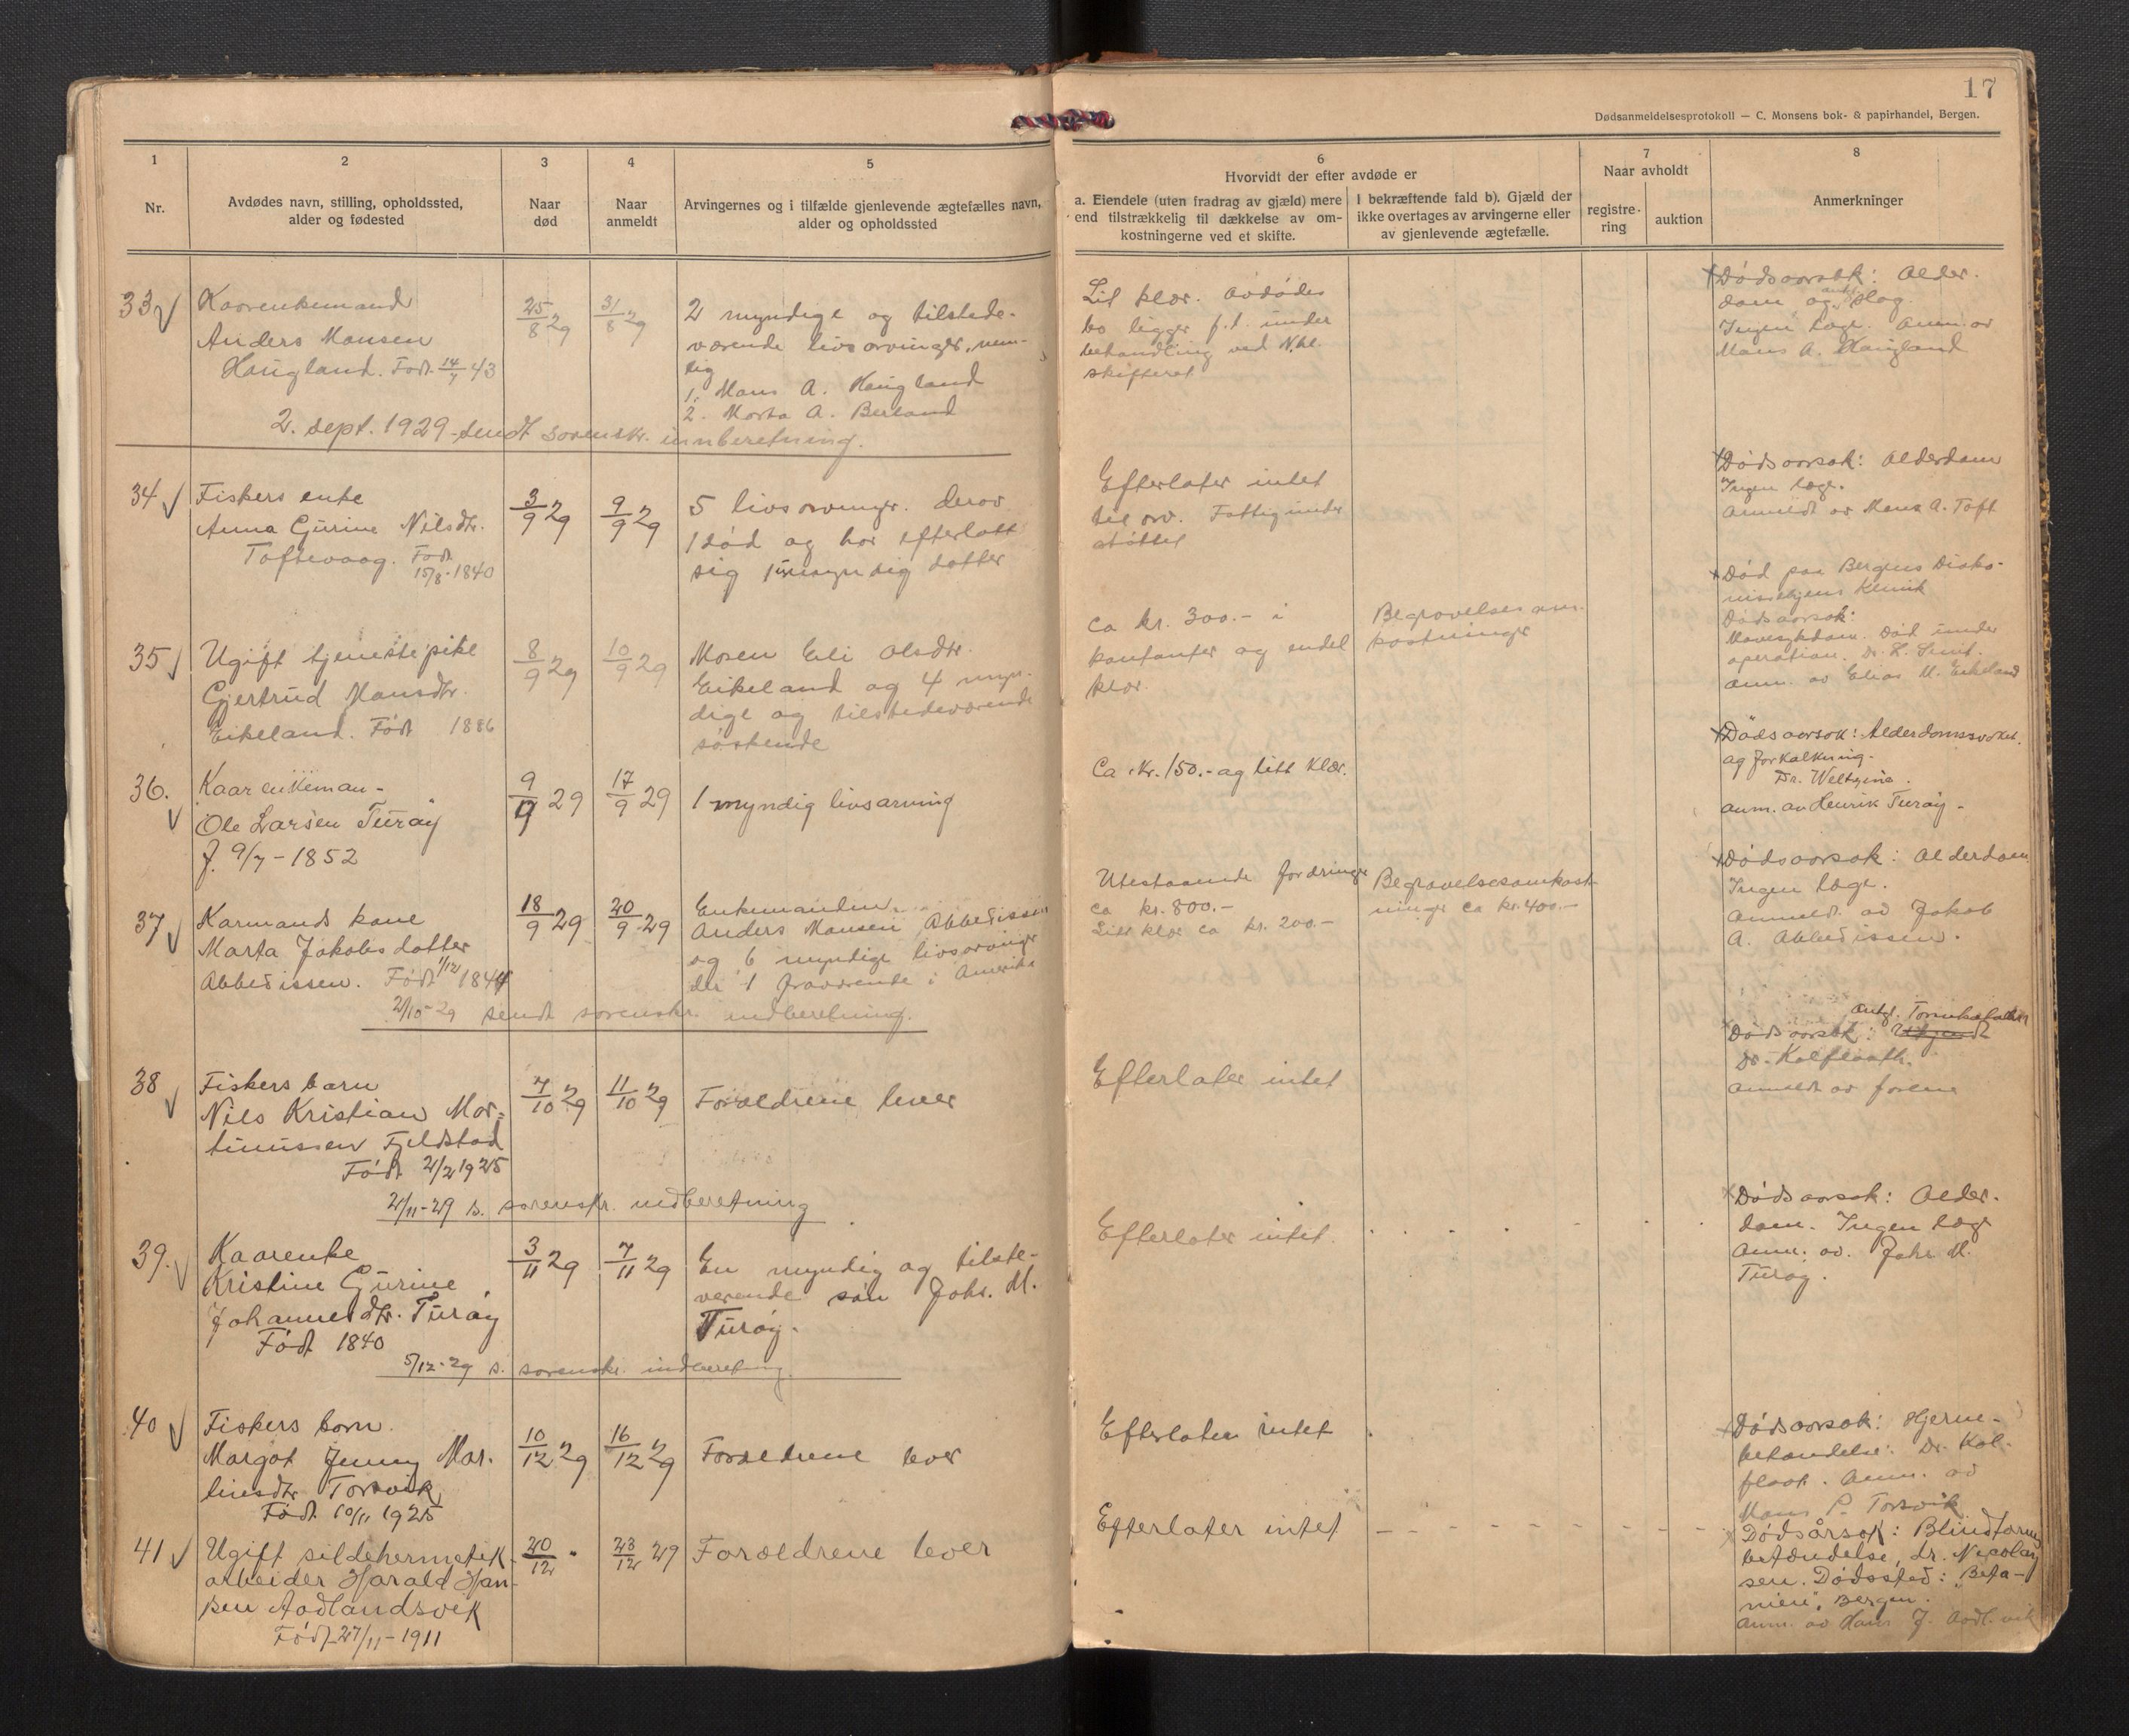 17
Dødsanmeldelsesprotokoll — C. Monsens bok- & papirhandel, Bergen.
1
Nr.
2
Avdødes navn, stilling, opholdssted,
alder og fødested
3
Naar
død
4
Naar
anmeldt
5
Arvingernes og i tilfælde gjenlevende ægtefælles navn,
alder og opholdssted
6
Hvorvidt der efter avdøde er
a. Eiendele (uten fradrag av gjæld) mere
end tilstrækkelig til dækkelse av om-
kostningerne ved et skifte.
I bekræftende fald b). Gjæld der
ikke overtages av arvingerne eller
av gjenlevende ægtefælle.
7
Naar avholdt
registre-
ring
auktion
8
Anmerkninger
33
Kaarenkemand
Anders Monsen
Haugland. Født 14/7 43
25/8 29
31/8 29
2 myndige og tilstede-
værende livsarvinger, nem-
lig
1. Mons A. Haugland
2. Marta A. Berland
Lit klær. Avdødes
bo ligger f.t. under
behandling ved N.hl.
skifteret
Dødsaarsak: Alder-
dom og slag.
Ingen læge. Anm. av
Mons A. Haugland
2. sept. 1929 sendt sorenskr. innberetning.
34
Fiskers enke
Anna Gurine Nilsdtr.
Toftevaag. Født
15/8-1840
3/9 29
9/9 29
5 livsarvinger. derav
1 død og har efterlatt
sig 1 umyndig datter
Efterlater intet
til arv. Fattigunder
støttet
Dødsaarsak: Alderdom
Ingen læge.
Anmeldt av Mons A. Toft
35
Ugift tjenestepike
Gjertrud Monsdtr.
Eikeland. Født 1886
8/9 29
10/9 29
Moren Eli Olsdtr.
Eikeland og 4 myn-
dige og tilstedeværende
søskende
Ca kr. 300.- i
kontanter og endel
klær.
Begravelsesom-
kostninger
Død paa Bergens Diako-
nissehjems Klinik
Dødsaarsak:
Mavesykdom. Død under
operation. Dr.
anm. av Elias M. Eikeland
36.
Kaarenkeman-
Ole Larsen Turøy
f. 9/7-1852
9/9 29
17/9 29
1 myndig livsarving
Ca. kr. 150.- og litt klær.
Dødsaarsak: Alderdomssvakh.
og forkalkning.
Dr. Weltzine.
anm. av Henrik Turøy-
37
Karmands kone
Marta Jakobsdatter
Abbedissen. Født 1/12 1844
18/9 29
20/9-29
Enkemanden
Anders Monsen Abbedissen
og 6 myndige livsarvinger
der 1 fraværende i Amerika
Utestaaende fordringer
ca kr. 800.-
Litt klær ca kr. 200.-
Begravelsesomkost-
ninger ca kr. 400.-
Dødsaarsak: Alderdom
Ingen læge.
Anmeldt av Jakob
A. Abbedissen.
2/10-29 sendt sorenskr. indberetning.
38
Fiskers barn
Nils Kristian Mar-
tinussen Fjeldstad
Født 2/2 1925
7/10 29
11/10 29
Forældrene lever
Efterlater intet
Antgl.
Dødsaarsak: Ukjendt
Dr. Kalfloath.
Anmeldt av faren
2/11-29 s. sorenskr. indberetning
39.
Kaarenke
Kristine Gurine
Johannesdtr. Turøy
Født 1840
3/11 29
7/11 29
En myndig og tilste-
verende søn Johs. M.
Turøy.
Efterlater intet.
Dødsaarsak: Alder-
dom. Ingen læge
Anm. av. Johs M.
Turøy.
5/12-29 s. sorenskr. indberetning.
40
Fiskers barn.
Margot Jenny Mar-
tinsdtr Torsvik
Født 10/11 1925
10/12 29
16/12 29
Forældrene lever
Efterlater intet
Dødsaarsak: Hjerne-
betændelse. Dr. Kal-
float. Anm. av
Mons P. Torsvik
41
Ugift sildehermetik-
arbeider Harald Han-
sen Aadlandsvik
Født 27/11-1911
20/12 "
23/12 29
Forældrene lever
Efterlater intet
Dødsårsak: Blindtarm
betændelse, dr. Nicolay
sen. Dødssted: „Beta-
nien", Bergen.
Anm. av Hans J. Aadl.vik